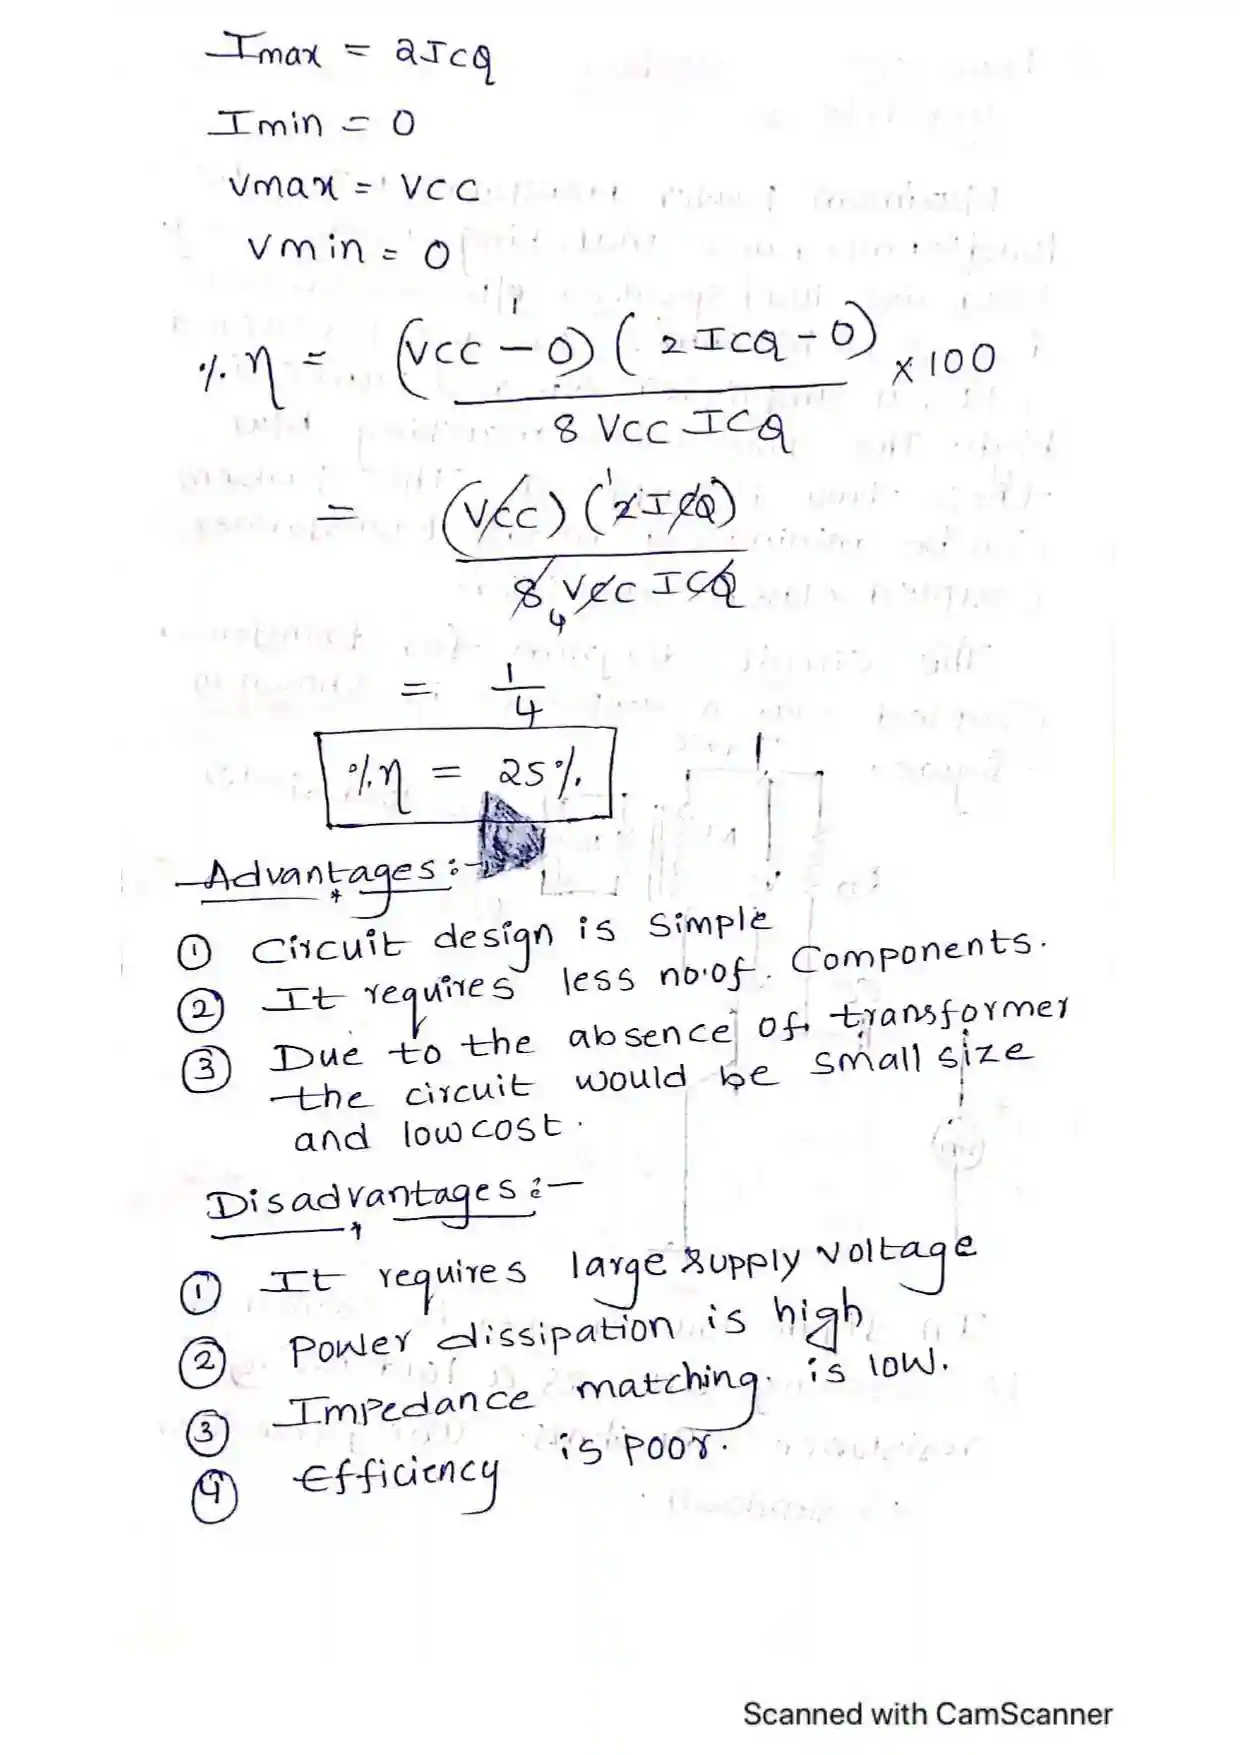 Imax = 2ICQ
Imin = 0
Vmax = VCC
Vmin = 0
%η = (VCC - 0) (2ICQ - 0) / 8 VCC ICQ × 100
= (VCC) (2ICQ) / 8 VCC ICQ
1
4
= 1/4
%η = 25%.
Advantages:-
① Circuit design is simple
② It requires less no.of. Components.
③ Due to the absence of transformer
the circuit would be small size
and low cost.
Disadvantages:-
① It requires large supply voltage
② Power dissipation is high
③ Impedance matching. is low.
④ Efficiency is poor.
Scanned with CamScanner